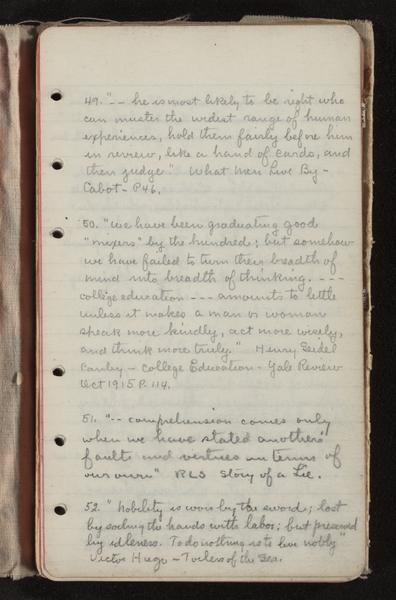 49. "-- he is most likely to be right who
can muster the widest range of human
experiences, hold them fairly before him
in review, like a hand of cards, and
then judge." What Men Live By -
Cabot - P46.
50. "We have been graduating good
"mixers" by the hundred; but somehow
we have failed to turn their breadth of
mind into breadth of thinking. ----
college education --- amounts to little
unless it makes a man or woman
speak more kindly, act more wisely,
and think more truly." Henry Seidel
Canby - College Education - Yale Review
Oct 1915 P. 114.
51. "-- comprehension comes only
when we have stated another's
faults and vertues in terms of
our own" RLS Story of a Lie.
52. "Nobility is won by the sword; lost
by soiling the hands with labor; but preserved
by idleness. To do nothing is to live nobly"
Victor Hugo - Toilers of the Sea.